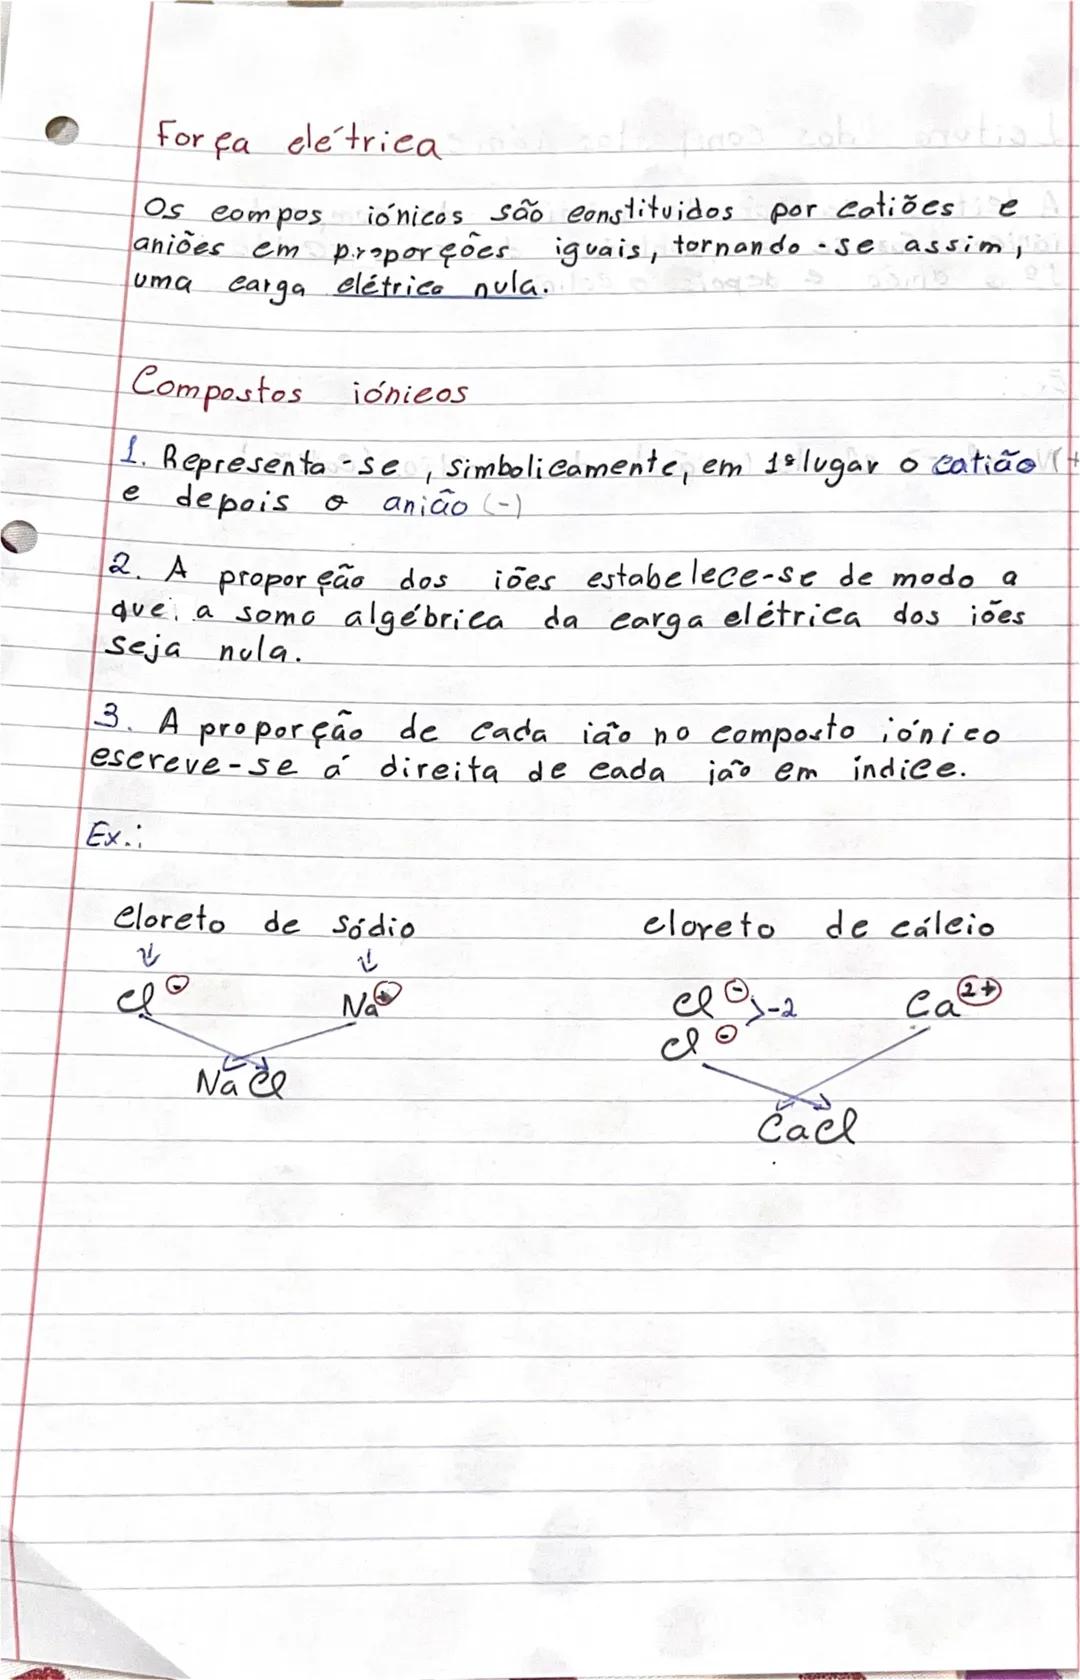 Força elétrica
Os compos iónicos são constituidos por catiões e
aniões em proporções iguais, tornando-se assim,
uma carga elétrica nula.
Compostos iónicos
1. Representa-se, simbolicamente, em 1º lugar o catião (+
e depois o anião (-)
2. A proporção dos iões estabelece-se de modo a
que, a soma algébrica da carga elétrica dos iões
seja nula.
3. A proporção de cada ião no composto iónico
escreve-se á direita de cada ião em índice.
Ex.:
cloreto de sódio cloreto de cálcio
Cl⁻ Na⁺ Cl⁻ >-2 Ca²⁺
Cl⁻
NaCl
CaCl